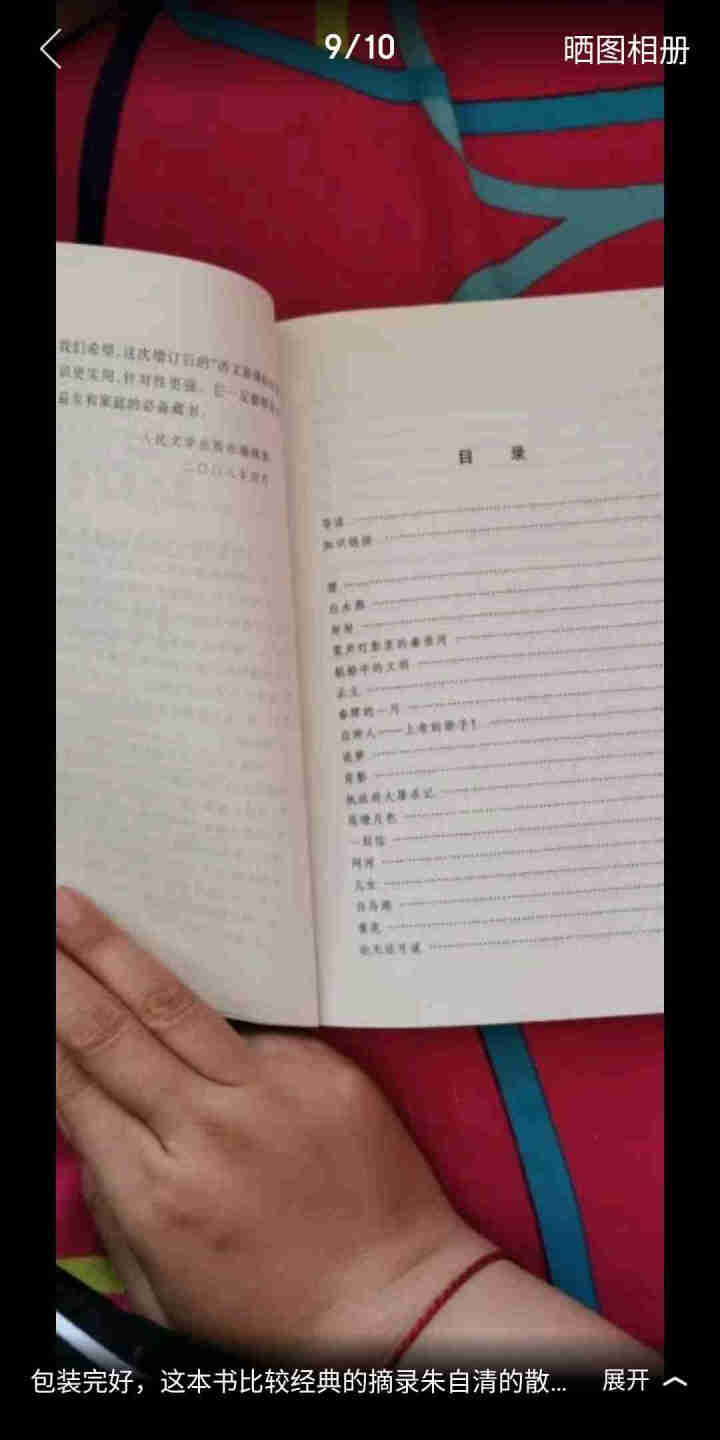 9/10
晒图相册
我们希望,这次增订后的“语文新课标
读更实用,针对性更强。它一定能够
人民文学出版社编辑部
二〇〇八年
目 录
导读
知识链接
匆匆
桨声灯影里的秦淮河
航船中的文明
正义
春晖的一月
白种人——上帝的骄子!
背影
执政府大屠杀记
荷塘月色
一封信
阿河
儿女
白马湖
看花
论无话可说
包装完好，这本书比较经典的摘录朱自清的散...
展开